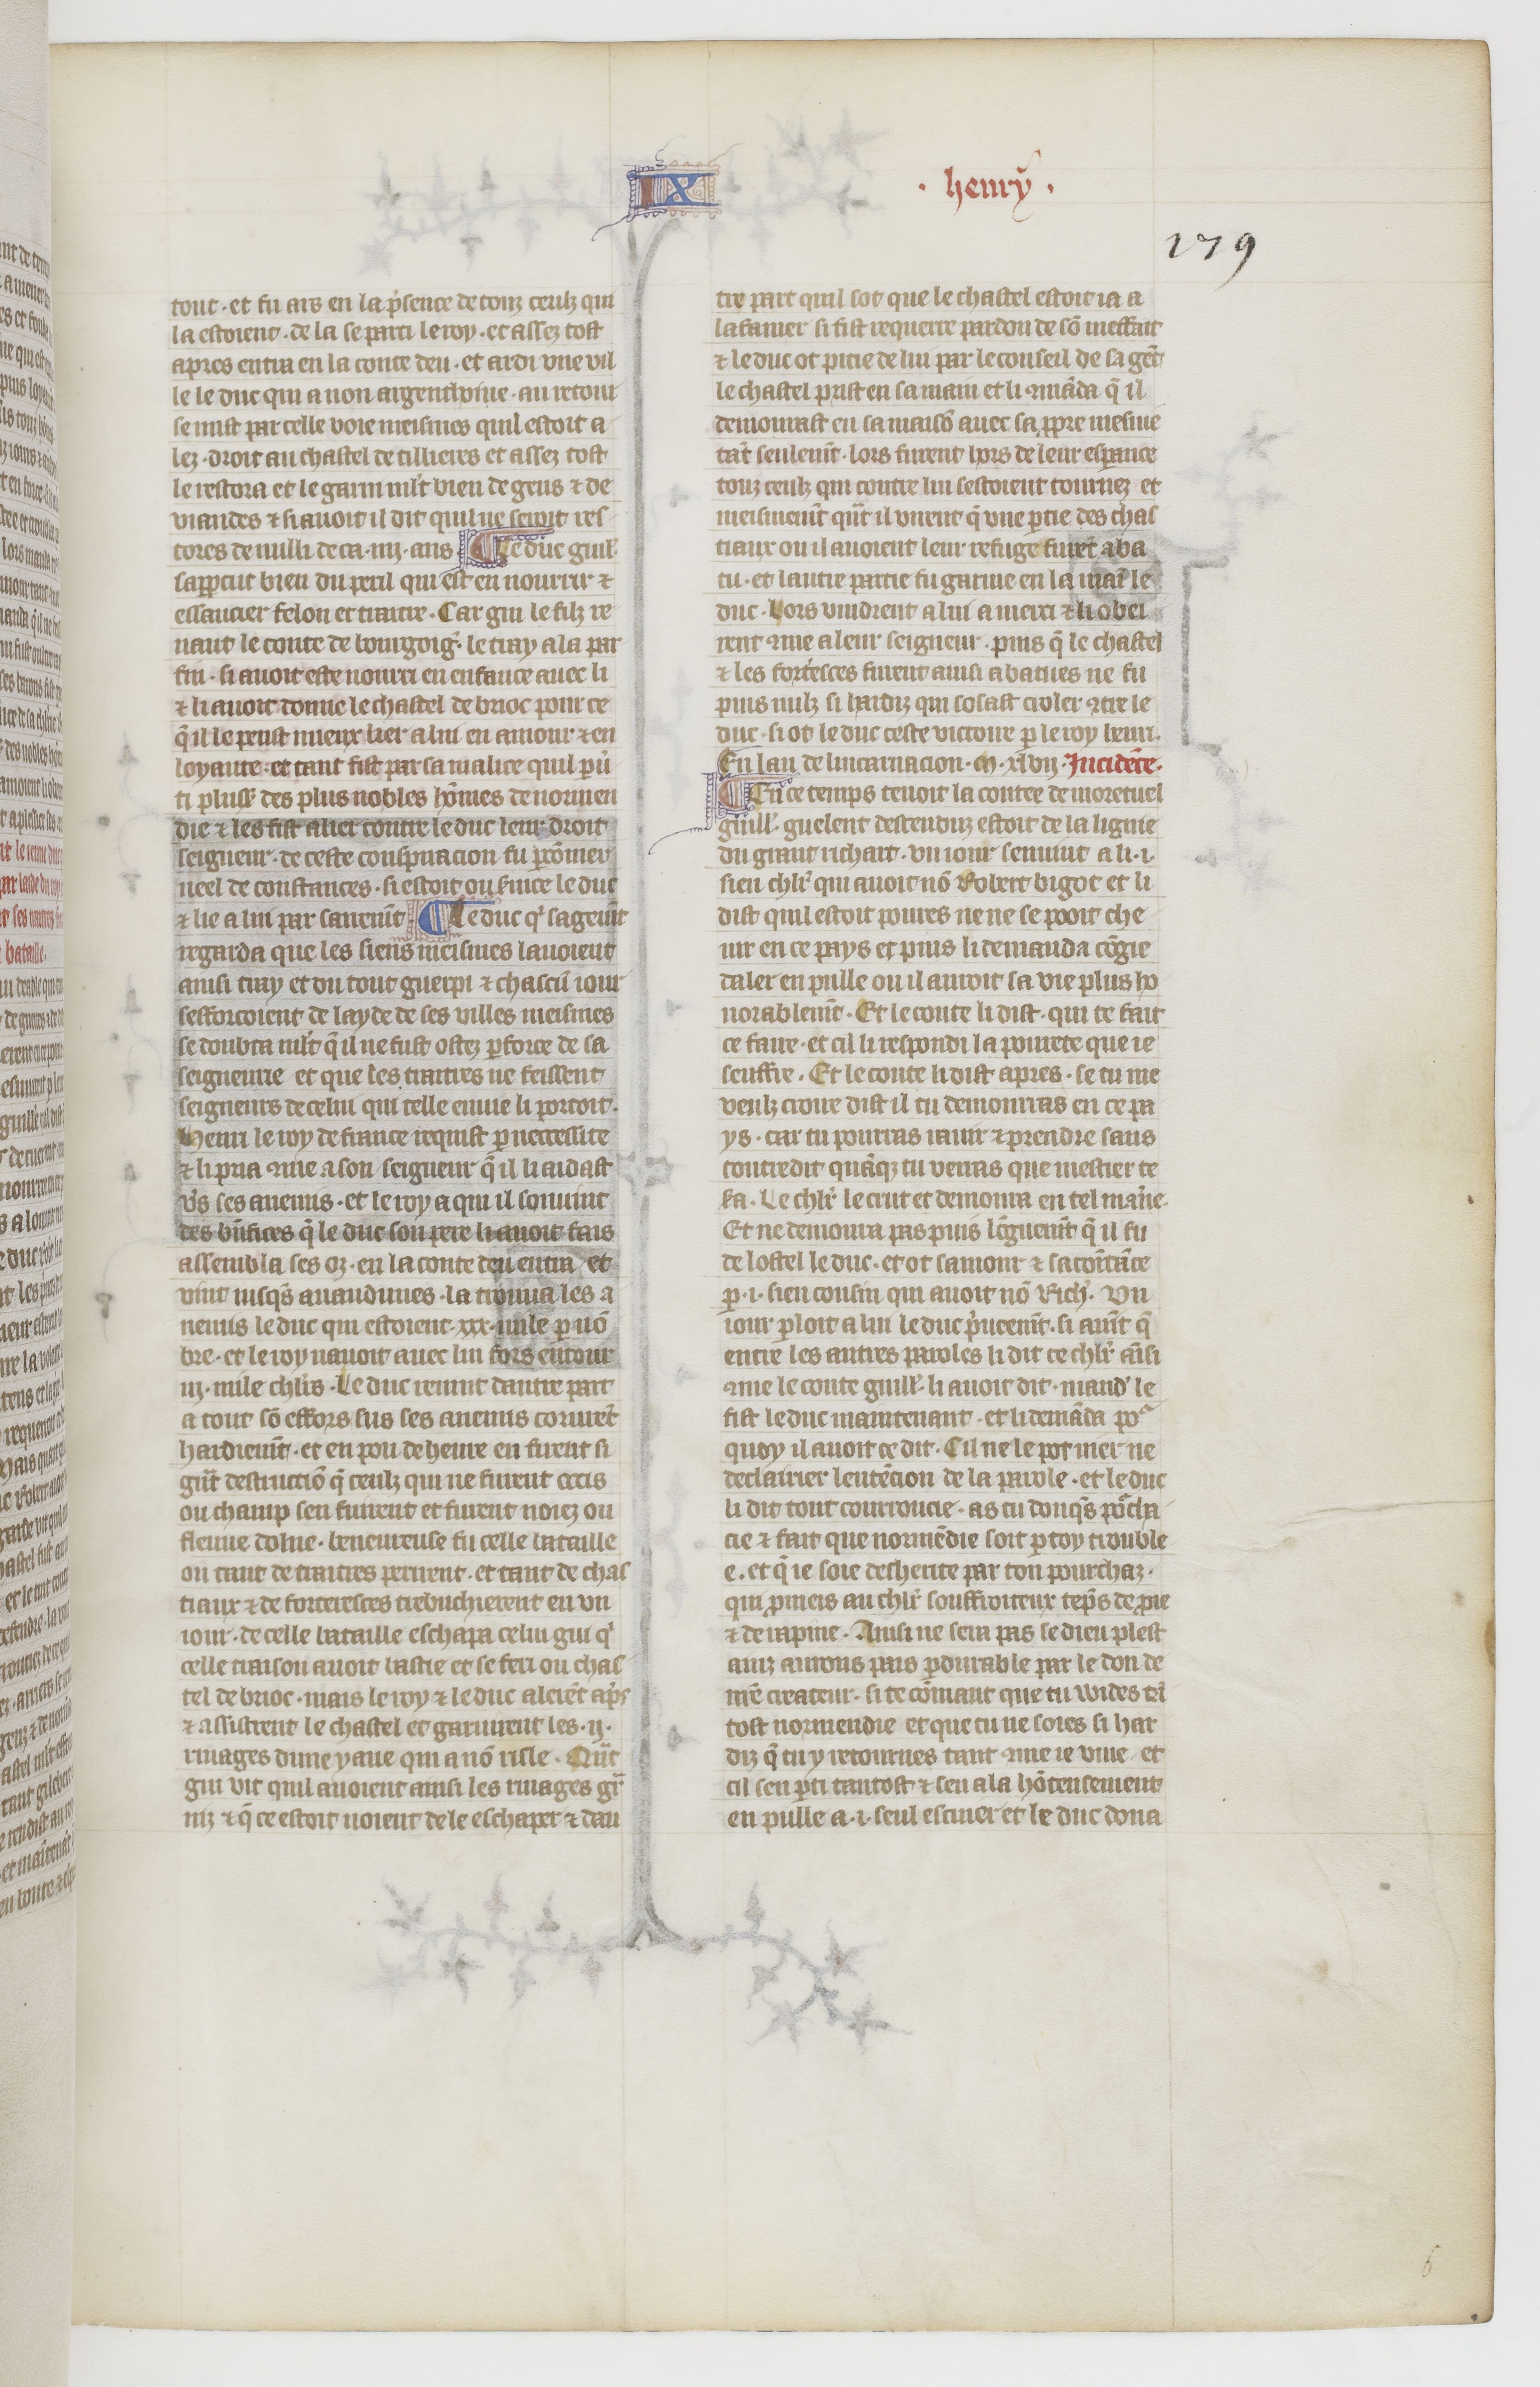 IX
· henry̾ ·
279
tout · et fu ars en la p̾sence de touz ceulz qui
la estoient · de la se parti le roy · et assez tost
apres entra en la conte deu · et ardi vne vil
le le duc qui a non argenthvine · au retour
se mist par celle voie meismes quil estoit a
lez · droit au chastel de tillieres et assez tost
le restora et le garni ml̾t bien de gens ⁊ de
viandes ⁊ si auoit il dit quil ne seroit res
tores de nulli deca · iiij · ans ¶ Le duc guill̾
saparcut bien du peril qui est en nourrir ⁊
essaucier felon et traitre · Car gui le filz re
naut le conte de bourgoig̾ · le tray a la par
fin · si auoit este nourri en enfance auec li
⁊ li auoit donne le chastel de brioc pour ce
q̄ il le peust mieux lier a lui en amour ⁊ en
loyaute · et tant fist par sa malice quil p̱u̾
ti plus̾ des plus nobles hōmes de normen
die ⁊ les fist alier contre le duc leur droit
seigneur · de ceste conspiracion fu p̱cōmier
neel de constances · si estoit ou seruice le duc
⁊ lie a lui par sairem̄t ¶ Le duc qͥ sagem̄t
regarda que les siens meismes lauoient
ainsi tray et du tout guerpi ⁊ chascū iour
sefforcoient de layde de ses villes meismes
se doubta ml̾t q̄ il ne fust ostez ꝑ force de sa
seigneurie et que les traitres ne feissent
seigneurs de celui qui telle enuie li portoit ·
Henri le roy de france requist ꝑ neccessite
⁊ li pria ꝯme a son seigneur q̄ il li aidast
v̾s ses anemis · et le roy a qui il souuint
des bn̄fices q̄ le duc son pere li auoit fais
assembla ses oz · en la conte deu entra et
vint iusq̄s auaudunes · la trouua les a
nemis le duc qui estoient · xxx · mile ꝑ nō
bre · et le roy nauoit auec lui fors entour
iij · mile chl̾rs · Le duc reuint dautre part
a tout sō effors sus ses anemis coruret̾
hardiem̄t · et en pou de heure en furent si
gn̄t destructiō q̄ ceulz qui ne furent occis
ou champ sen fuirent et furent noiez ou
fleuue dolne · beneureuse fu celle bataille
ou tant de traitres perirent · et tant de chas
tiaux ⁊ de forteresces trebuchierent en vn
iour · de celle bataille eschapa celui gui qͥ
celle traison auoit bastie et se feri ou chas
tel de brioc · mais le roy ⁊ le duc alerēt ap̾s
⁊ assistrent le chastel et garnirent les · ij ·
riuages dune yaue qui a nō risle · Qn̄t
gui vit quil auoient ainsi les riuages gr̄
niz ⁊ q̄ ce estoit noient de le eschaper ⁊ dau
tre part quil sot que le chastel estoit ia a
lafamer si fist requerre pardon de sō meffait
⁊ le duc ot pitie de lui par le conseil de sa gēt
le chastel prist en sa main et li ꝯmāda q̄ il
demourast en sa maisō auec sa ꝓpre mesnie
tāt seulem̄t · lors furent hors de leur espance
touz ceulz qui contre lui sestoient tournez et
meismem̄t qn̄t il virent q̄ vne ꝑtie des chas
tiaux ou il auoient leur refuge furēt aba
tu · et lautre partie fu garnie en la mai̾ le
duc · Lors vindrent a lui a merci ⁊ li obei
rent ꝯme a leur seigneur · puis q̄ le chastel
⁊ les fort̾esces furent ainsi abatues ne fu
puis nulz si hardiz qui sosast croler ꝯtre le
duc · si ot le duc ceste victoire ꝑ le roy henri ·
En lan de lincarnacion · m · xlvij · Incidēce ·
¶ En ce temps tenoit la contee de moretuel
guill̾ · guelent descenduz estoit de la lignie
du grant richart · vn iour seruint a li · i ·
sien chl̾r qui auoit nō Robert bigot et li
dist quil estoit poures ne ne se pooit che
uir en ce pays et puis li demanda cōgie
daler en puille ou il auroit sa vie plus ho
norablem̄t · Et le conte li dist · qui te fait
ce faire · et cil li respondi la pourete que ie
seuffre · Et le conte li dist apres · se tu me
veulz croire dist il tu demourras en ce pa
ys · car tu pourras rauir ⁊ prendre sans
contredit quāqz tu verras que mestier te
fa · Le chl̾r le crut et demoura en tel mar̾ie ·
Et ne demoura pas puis lōguem̄t q̄ il fu
de lostel le duc · et ot samour ⁊ sacoītāce
ꝑ · i · sien cousin qui auoit nō Rich̾ · Vn
iour ꝑloit a lui le duc p̾uem̄t · si auīt q̄
entre les autres paroles li dit ce chl̾r aīsi
ꝯme le conte guill̾ · li auoit dit · mand̾ le
fist le duc maintenant · et li demāda poͬ
quoy il auoit ce dit · Cil ne le pot nier ne
declairier lentēcion de la parole · et le duc
li dit tout courroucie · as tu donq̄s poͬcha
cie ⁊ fait que normēdie soit ꝑ toy trouble
e · et q̄ ie soie desherite par ton pourchaz ·
qui ꝓmeis au chl̾r souffroiteux tēps de p̾ie
⁊ de rapine · Ainsi ne sera pas se dieu plest
ainz aurons pais ꝑdurable par le don de
nr̄e createur · si te cōmant que tu vvides tā
tost normendie et que tu ne soies si har
diz q̄ tu y retournes tant ꝯme ie viue · et
cil sen ꝑti tantost ⁊ sen ala hōteusement
en puille a · i · seul escuier et le duc dona
6